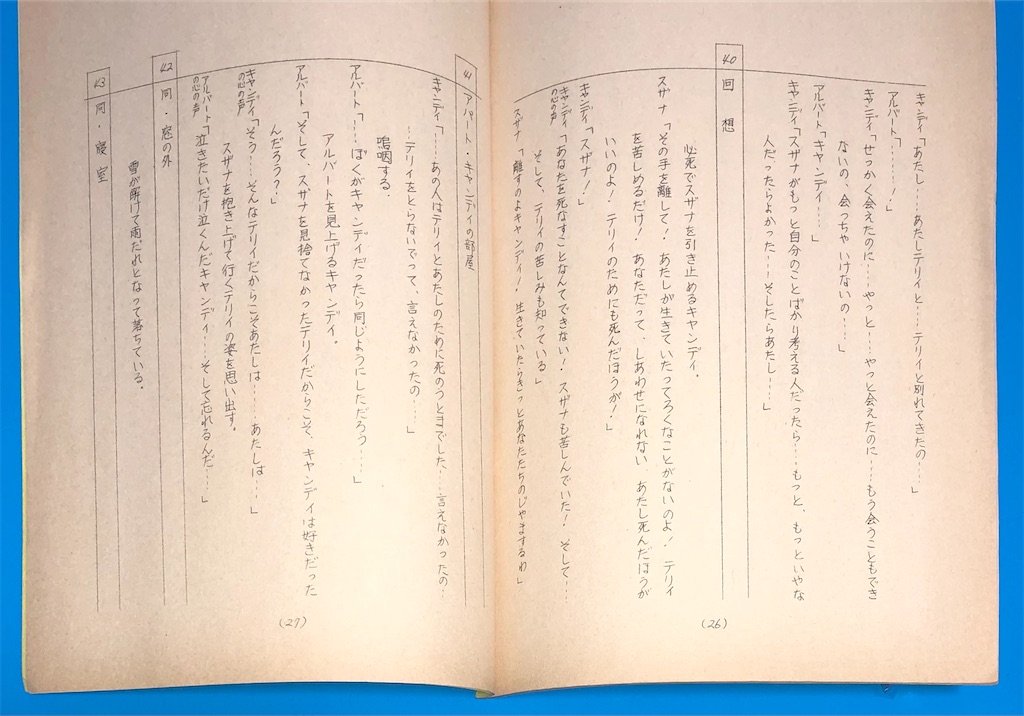 キャンディ「あたし……あたしテリィと……テリィと別れてきたの……」
アルバート「………！」
キャンディ「せっかく会えたのに……やっと……やっと会えたのに…もう会うこともでき
ないの、会っちゃいけないの……」
アルバート「キャンディ……」
キャンディ「スザナがもっと自分のことばかり考える人だったら……もっと、もっといやな
人だったらよかった……そしたらあたし……」
40 回想
必死でスザナを引き止めるキャンディ。
スザナ「その手を離して！あたしが生きていたってろくなことがないのよ！テリィ
を苦しめるだけ！あなただって、しあわせになれない、あたし死んだほうが
いいのよ！テリィのためにも死んだほうが！」
キャンディ「スザナ！」
キャンディの心の声「あなたを死なすことなんてできない！スザナも苦しんでいた！そして…
そして、テリィの苦しみも知っている」
スザナ「離すのよキャンディ！生きていたらきっとあなたたちのじゃまするわ」
(26)
41 アパート・キャンディの部屋
キャンディ「……あの人はテリィとあたしのために死のうとまでした…言えなかったの…
……テリィをとらないでって、言えなかったの……」
嗚咽する。
アルバート「……ぼくがキャンディだったら同じようにしただろう……」
アルバートを見上げるキャンディ。
アルバート「そして、スザナを見捨てなかったテリィだからこそ、キャンディは好きだった
んだろう？」
キャンディの心の声「そう……そんなテリィだからこそあたしは………あたしは……」
スザナを抱き上げて行くテリィの姿を思い出す。
アルバートの心の声「泣きたいだけ泣くんだキャンディ……そして忘れるんだ……」
42 同・窓の外
雪が解けて雨だれとなって落ちている。
43 同・寝室
(27)